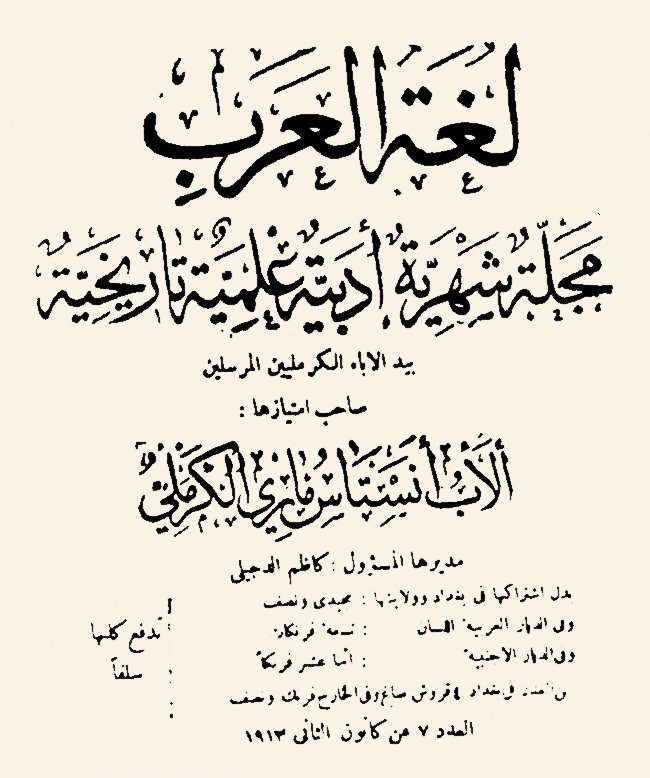 لغة العرب
مجلة شهرية أدبية علمية تاريخية
بيد الآباء الكرمليين المرسلين
صاحب امتيازها :
ألأب أنستاس ماري الكرملي
مديرها المسؤول : كاظم الدجيلي
بدل اشتراكها في بغداد وولايتها : مجيدي ونصف
وفي الديار العربية اللسان : تسعة فرنكات
وفي الديار الاجنبية : اثنا عشر فرنكاً
تدفع كلها
سلفاً
العدد في بغداد ٤ قروش صاغ وفي الخارج فرنك ونصف
العدد ٧ عن كانون الثاني ١٩١٣